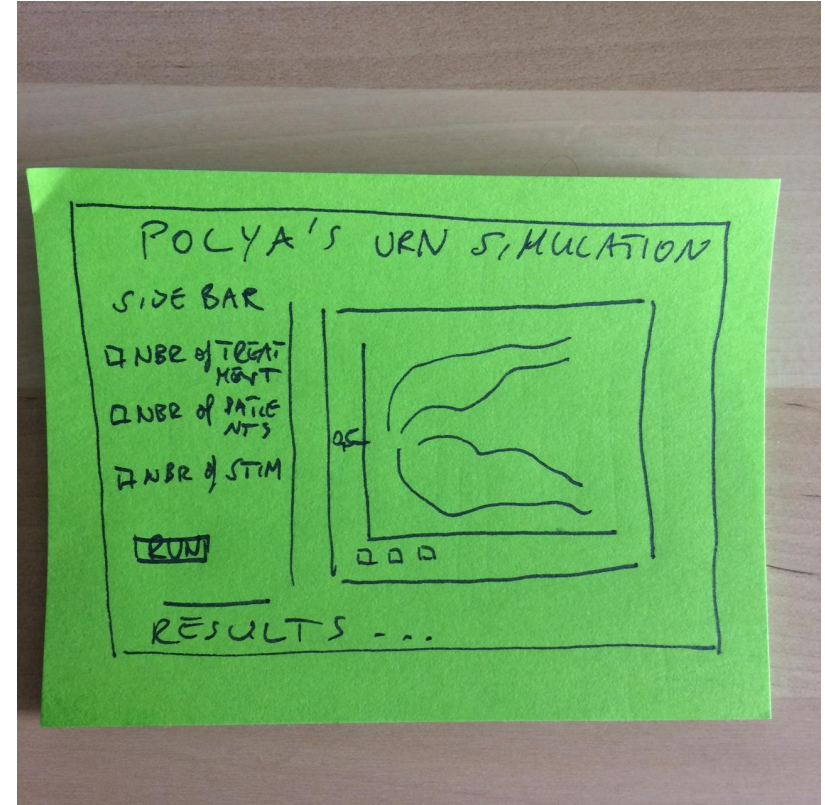 POLYA'S URN SIMULATION
SIDE BAR
NBR of TREAT
MENT
NBR of PATIE
NTS
NBR of STIM
RUN
0,5
RESULTS ...